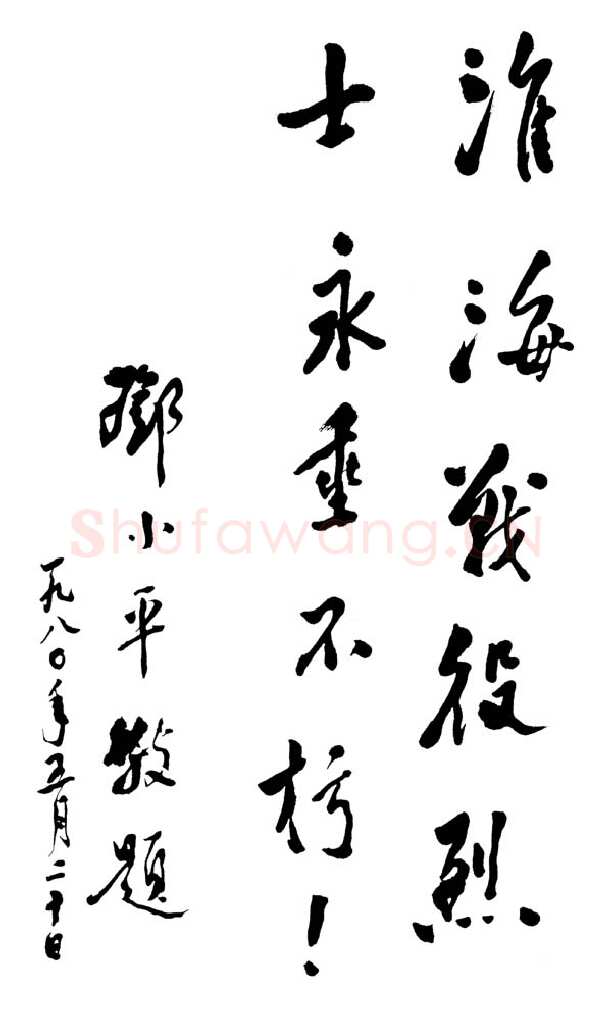 淮海战役烈
士永垂不朽！
邓小平敬题
一九八〇年五月二十日
Shufawang.CN